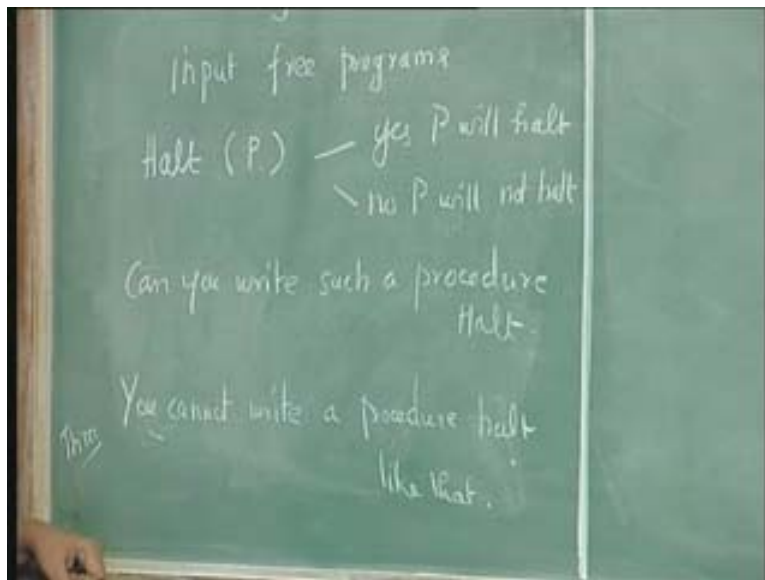 Input free programs
Halt (P.) yes P will halt
no P will not halt
Can you write such a procedure
Halt.
Thm You cannot write a procedure halt
like that.